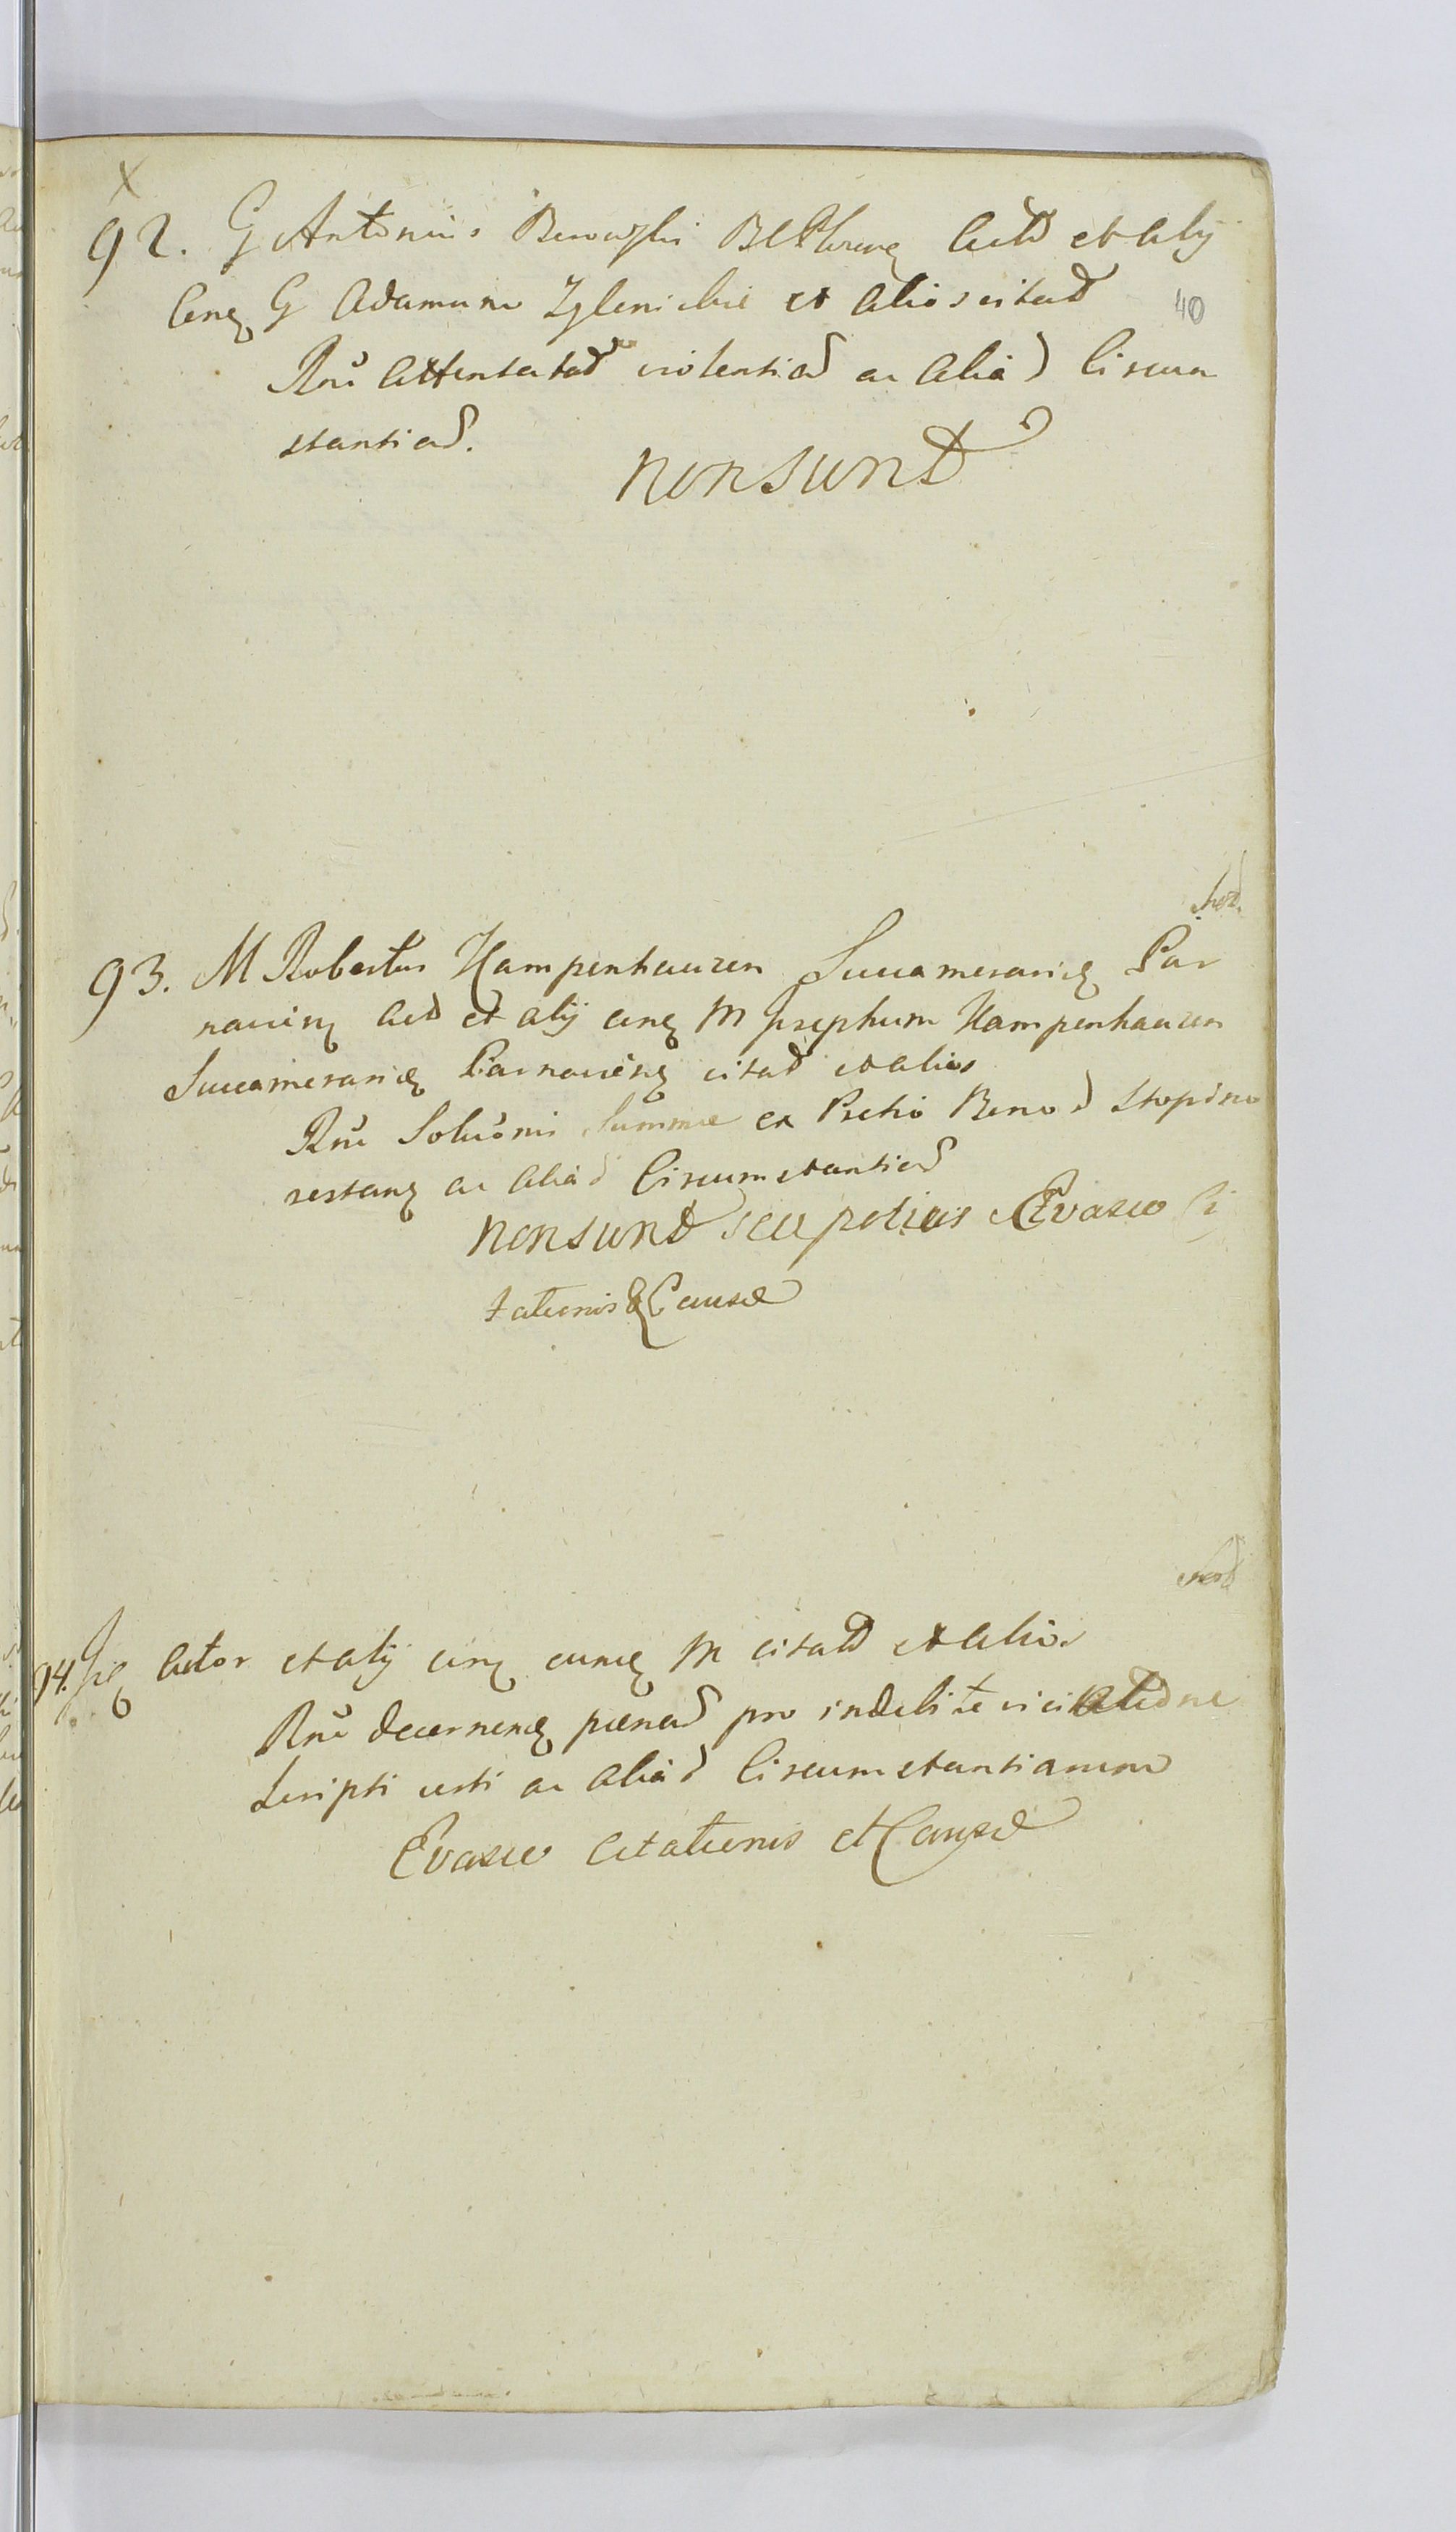 X
92. G Antonius Act et alij
Cnq G Adamum Zglenicki et alios citat
40
Rne attentatad violentiad ac aliad Circum
stantiad.
non sunt
93. M Robertus Hampenhauzen Succamerariq Par
naviens Act et alij cnq M Josephum Hampenhauzen
Succamerariq Parnaviens citat et alios
Rne Soluonis Summae ex Pretio Bonod Stopino
restanq ac aliad Circumstantiad
non sunt seu potius Evasio Ci
tationis & Causae
94. Actor et alij cnq eundq M citat et alios
Rne decernend paenad pro indebite
Scripti ac aliad Circumstantiarum
Evasio Citationis et Causae